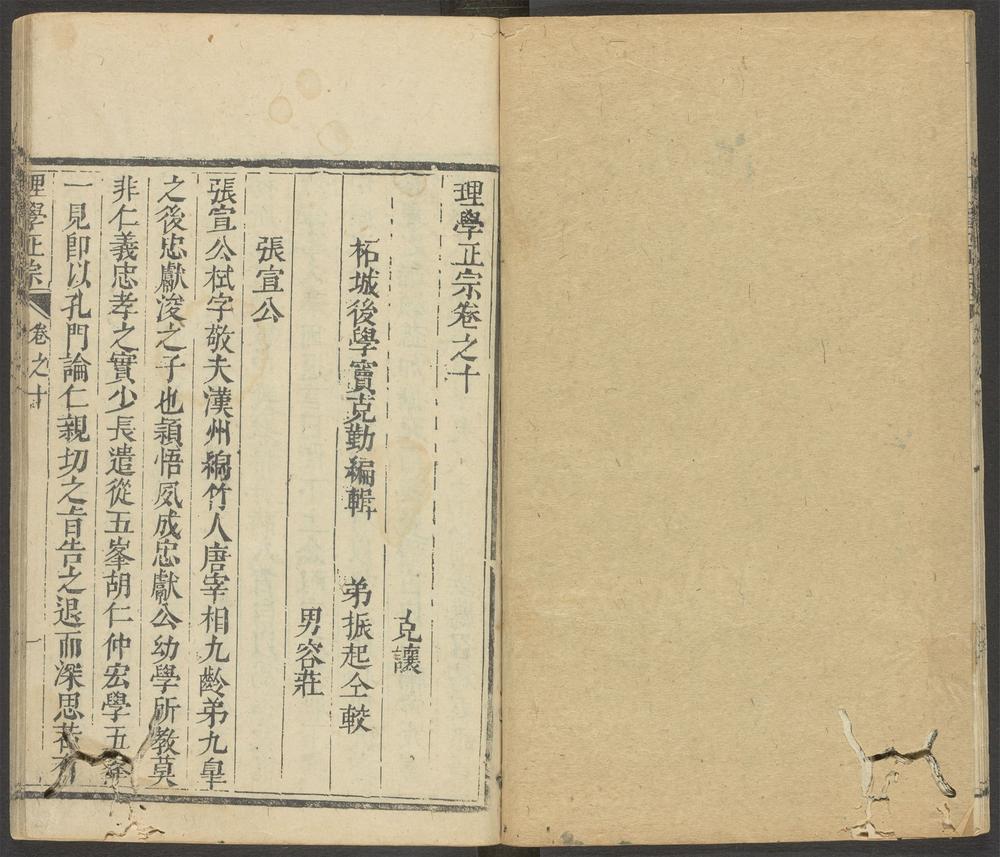 理學正宗卷之十
克讓
柘城後學竇克勤編輯 弟振起仝較
男容莊
張宣公
張宣公栻字敬夫漢州綿竹人唐宰相九齡弟九臯
之後忠獻浚之子也穎悟夙成忠獻公幼學所教莫
非仁義忠孝之實少長遣從五峯胡仁仲宏學五峯
一見卽以孔門論仁親切之旨告之退而深思若有
理學正宗 卷之十 一